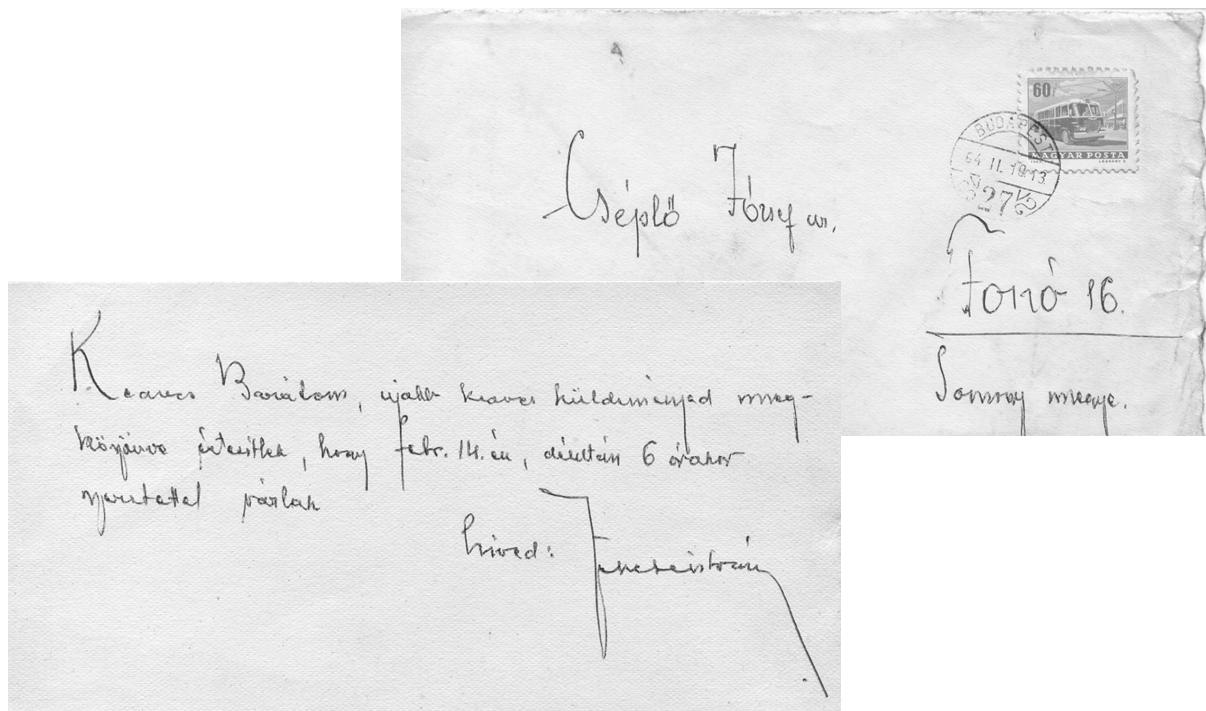 60
BUDAPEST
MAGYAR POSTA
64 II.
27
Cséplő József ur.
Fonó 16.
Somogy megye.
Kedves Barátom, ujabb kedves küldeményed meg-
köszönve értesítlek, hogy febr. 14.én, délután 6 órakor
szeretettel várlak
hived:
Feketeistván